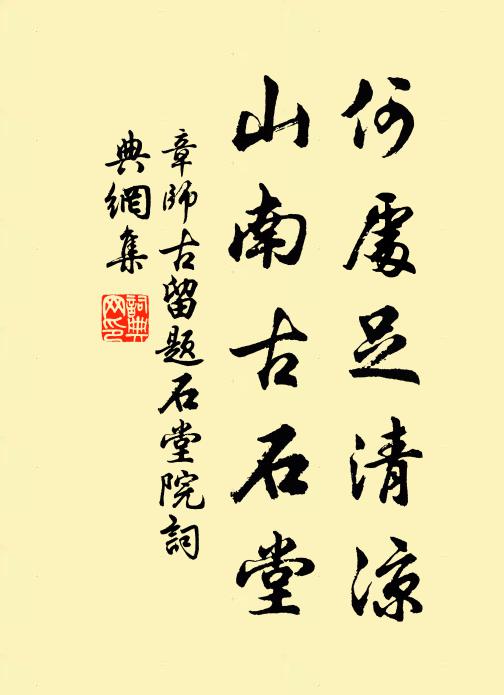 何處足清涼
山南古石堂
章師古留題石堂院詞
典網集
詞典
网印